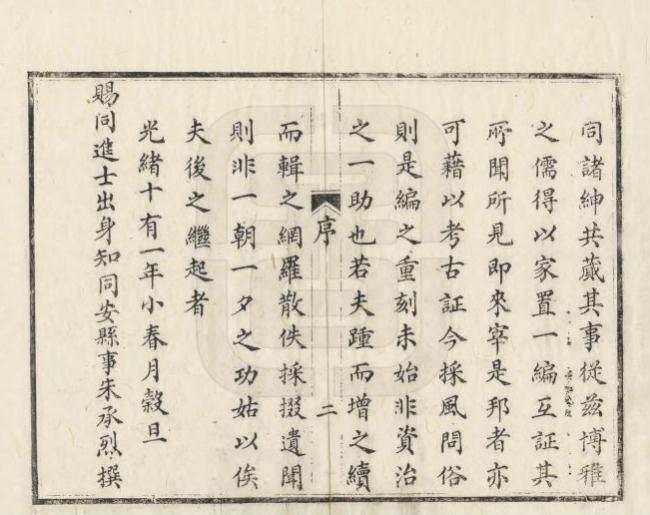 同諸紳共蕆其事從兹博雅
之儒得以家置一編互証其
所聞所見即來宰是邦者亦
可藉以考古証今採風問俗
則是編之重刻未始非資治
之一助也若夫踵而增之續
序
二
而輯之網羅散佚採掇遺聞
則非一朝一夕之功姑以俟
夫後之繼起者
光緒十有一年小春月穀旦
賜同進士出身知同安縣事朱承烈撰